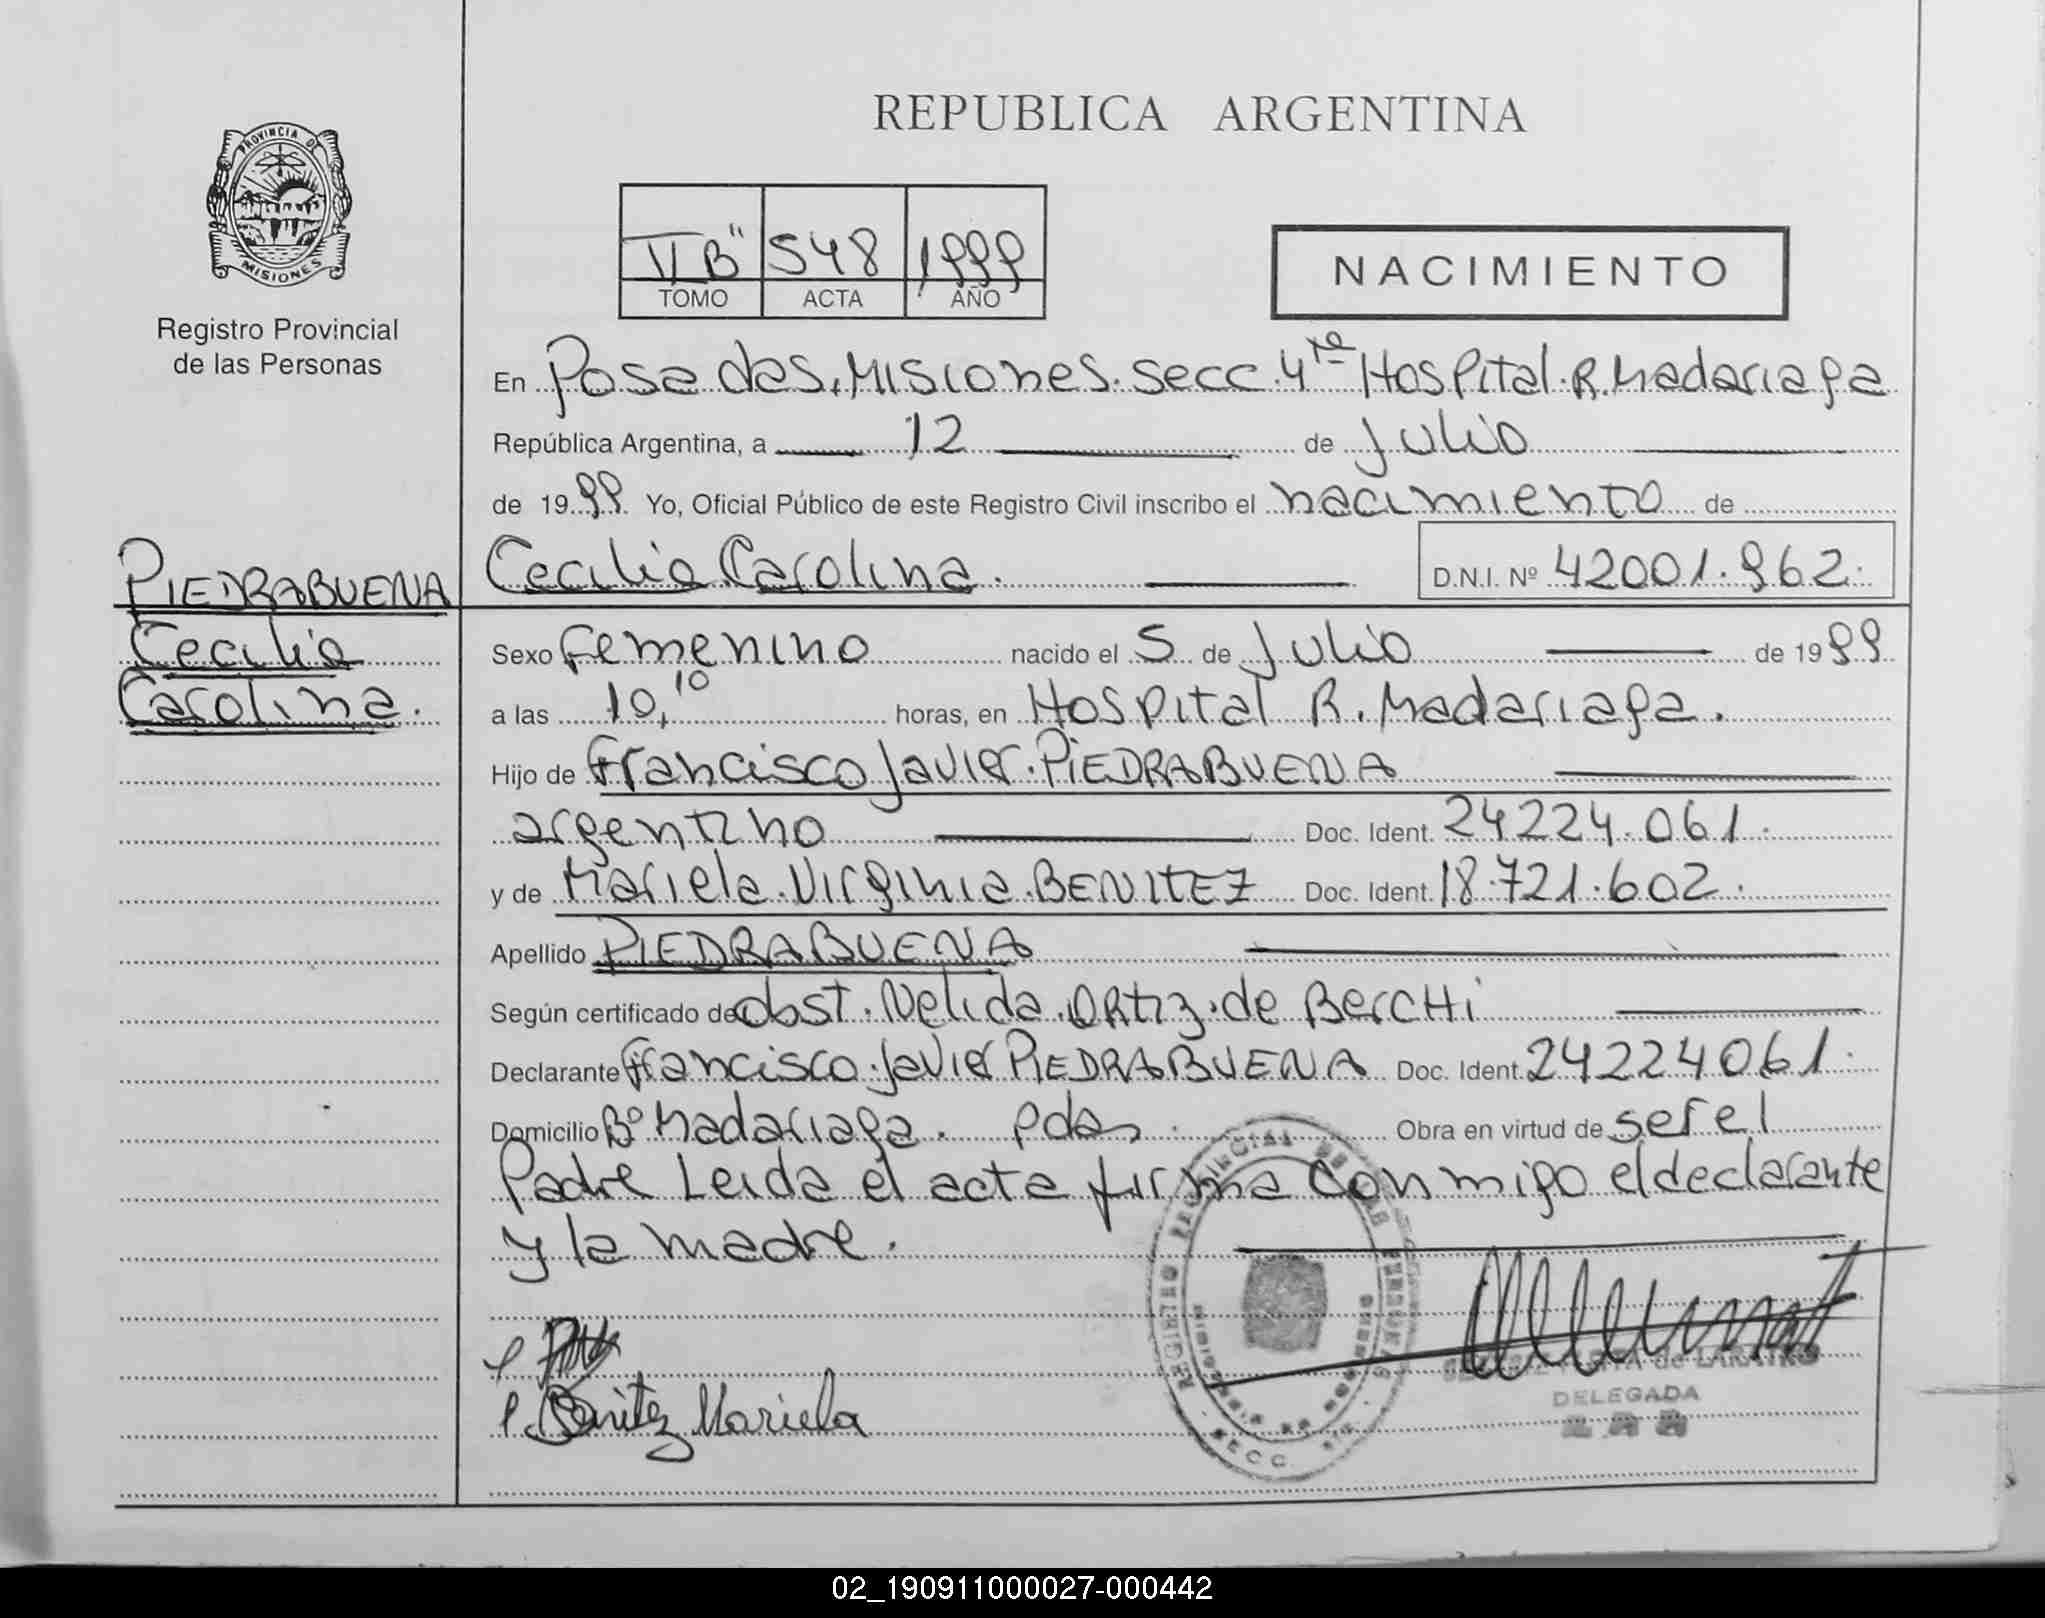 REPUBLICA ARGENTINA
PROVINCIA DE
MISIONES
Registro Provincial
de las Personas
II B" 548 1999
TOMO ACTA AÑO
NACIMIENTO
En Posadas. Misiones. secc. 4ta Hospital. R. Madariaga
República Argentina, a 12 de Julio
de 1999 Yo, Oficial Público de este Registro Civil inscribo el nacimiento de
Cecilia Carolina. D.N.I. Nº 42001.962.
PIEDRABUENA
Cecilia
Carolina.
Sexo Femenino nacido el 5 de Julio de 1999
a las 10,10 horas, en Hospital R. Madariaga.
Hijo de Francisco Javier. PIEDRABUENA
argentino Doc. Ident. 24224.061.
y de Mariela. Virginia. BENITEZ Doc. Ident. 18.721.602.
Apellido PIEDRABUENA
Según certificado de obst. Nelida. ORtiz. de BerCHi
Declarante Francisco. Javier PIEDRABUENA Doc. Ident. 24224061.
Domicilio Bº Madariaga. Pdas. Obra en virtud de ser el
Padre Leida el acta firma conmigo el declarante
y la madre.
Benitez Mariela
REGISTRO PROVINCIAL DE LAS PERSONAS
SECC.
de
DELEGADA
02_190911000027-000442